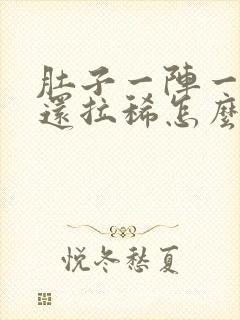 肚子一陣一
還拉稀怎麼
悅冬愁夏